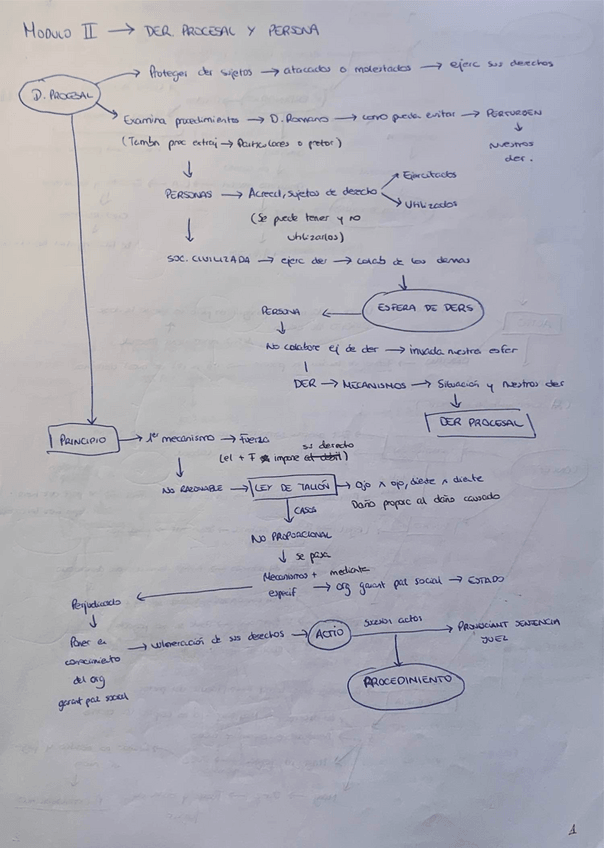 MODULO II → DER PROCESAL Y PERSONA
D. PROCESAL → Proteger der sujetos → atacados o molestados → ejerc sus derechos
→ Examina procedimientos → D. Romano → como pueda evitar → PERTURBEN
(Tambn proc extraj → Particulares o pretor)
nuestros
der.
PERSONAS → Acreed, sujetos de derecho
Ejercitados
Utilizados
(Se puede tener y no
utilizarlos)
SOC. CIVILIZADA → ejerc der → colab de los demas
PERSONA ← ESFERA DE DERS
No colabore ej de der → invada nuestra esfer
DER → MECANISMOS → Situación y nuestros der
DER PROCESAL
PRINCIPIO → 1er mecanismo → Fuerza
su derecho
(el + F impone el debil)
NO RAZONABLE → LEY DE TALIÓN → Ojo x ojo, diente x diente
Daño proporc al daño causado
CASOS
NO PROPORCIONAL
se pasa
Mecanismos + mediante
especif → org garant paz social → ESTADO
Perjudicado
Poner en
conocimiento
del org
garant paz social
→ vulneración de sus derechos → ACTIO
sucesi actos
→ PRONUNCIANT SENTENCIA
JUEZ
PROCEDIMIENTO
1